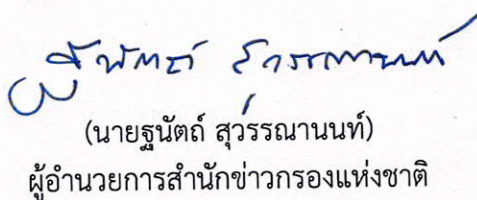 ฐนัตถ์ สุวรรณานนท์
(นายฐนัตถ์ สุวรรณานนท์)
ผู้อำนวยการสำนักข่าวกรองแห่งชาติ